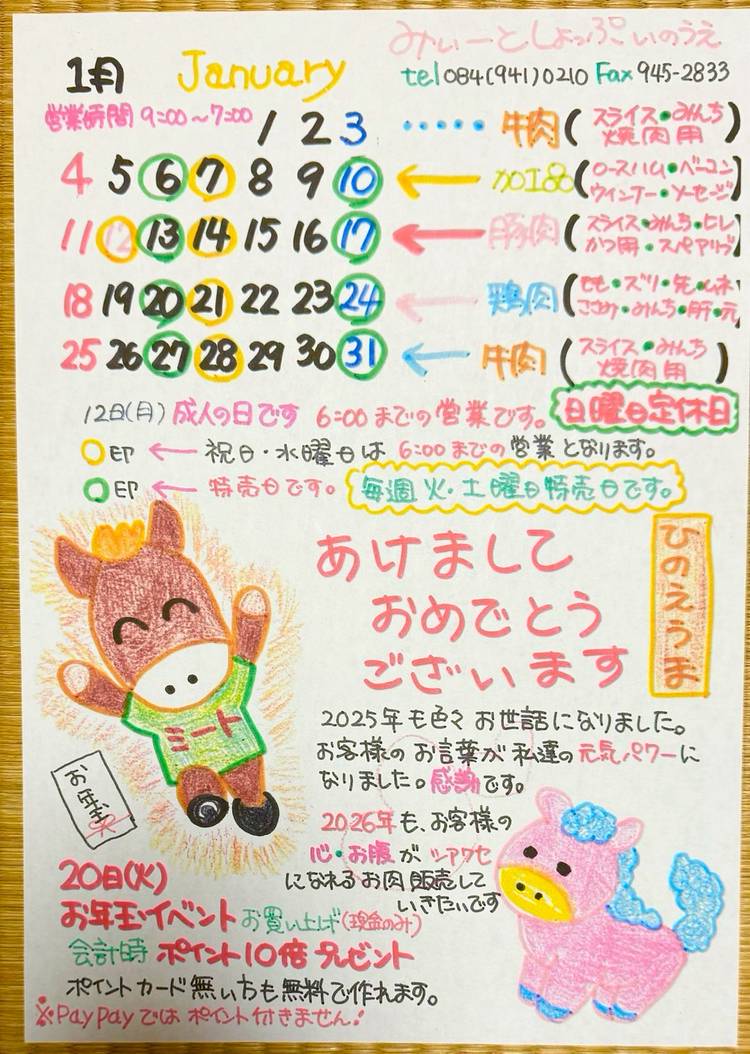 みぃーとしょっぷいのうえ
1月 January
tel 084(941)0210 Fax 945-2833
営業時間 9:00〜7:00
1 2 3 ‥‥‥ 牛肉(スライス・みんち
焼肉用)
4 5 6 7 8 9 10 ← 加工品(ロースハム・ベーコン
ウインナー・ソーセージ)
11 12 13 14 15 16 17 ← 豚肉(スライス・みんち・ヒレ
かつ用・スペアリブ
18 19 20 21 22 23 24 ← 鶏肉(モモ・ズリ・先・ムネ
ささみ・みんち・肝・元
25 26 27 28 29 30 31 ← 牛肉(スライス・みんち
焼肉用)
12日(月)成人の日です 6:00までの営業です。 日曜日定休日
○印 ← 祝日・水曜日は 6:00までの営業となります。
○印 ← 特売日です。 毎週火・土曜日特売日です。
あけまして
おめでとう
ございます
ひのえうま
ミート
お年玉
2025年も色々お世話になりました。
お客様のお言葉が私達の元気パワーに
なりました。感謝です。
2026年も、お客様の
心・お腹がシアワセ
になれるお肉販売して
いきたいです
20日(火)
お年玉イベント お買い上げ(現金のみ)
会計時 ポイント10倍プレゼント
ポイントカード無い方も無料で作れます。
※PayPayではポイント付きません!